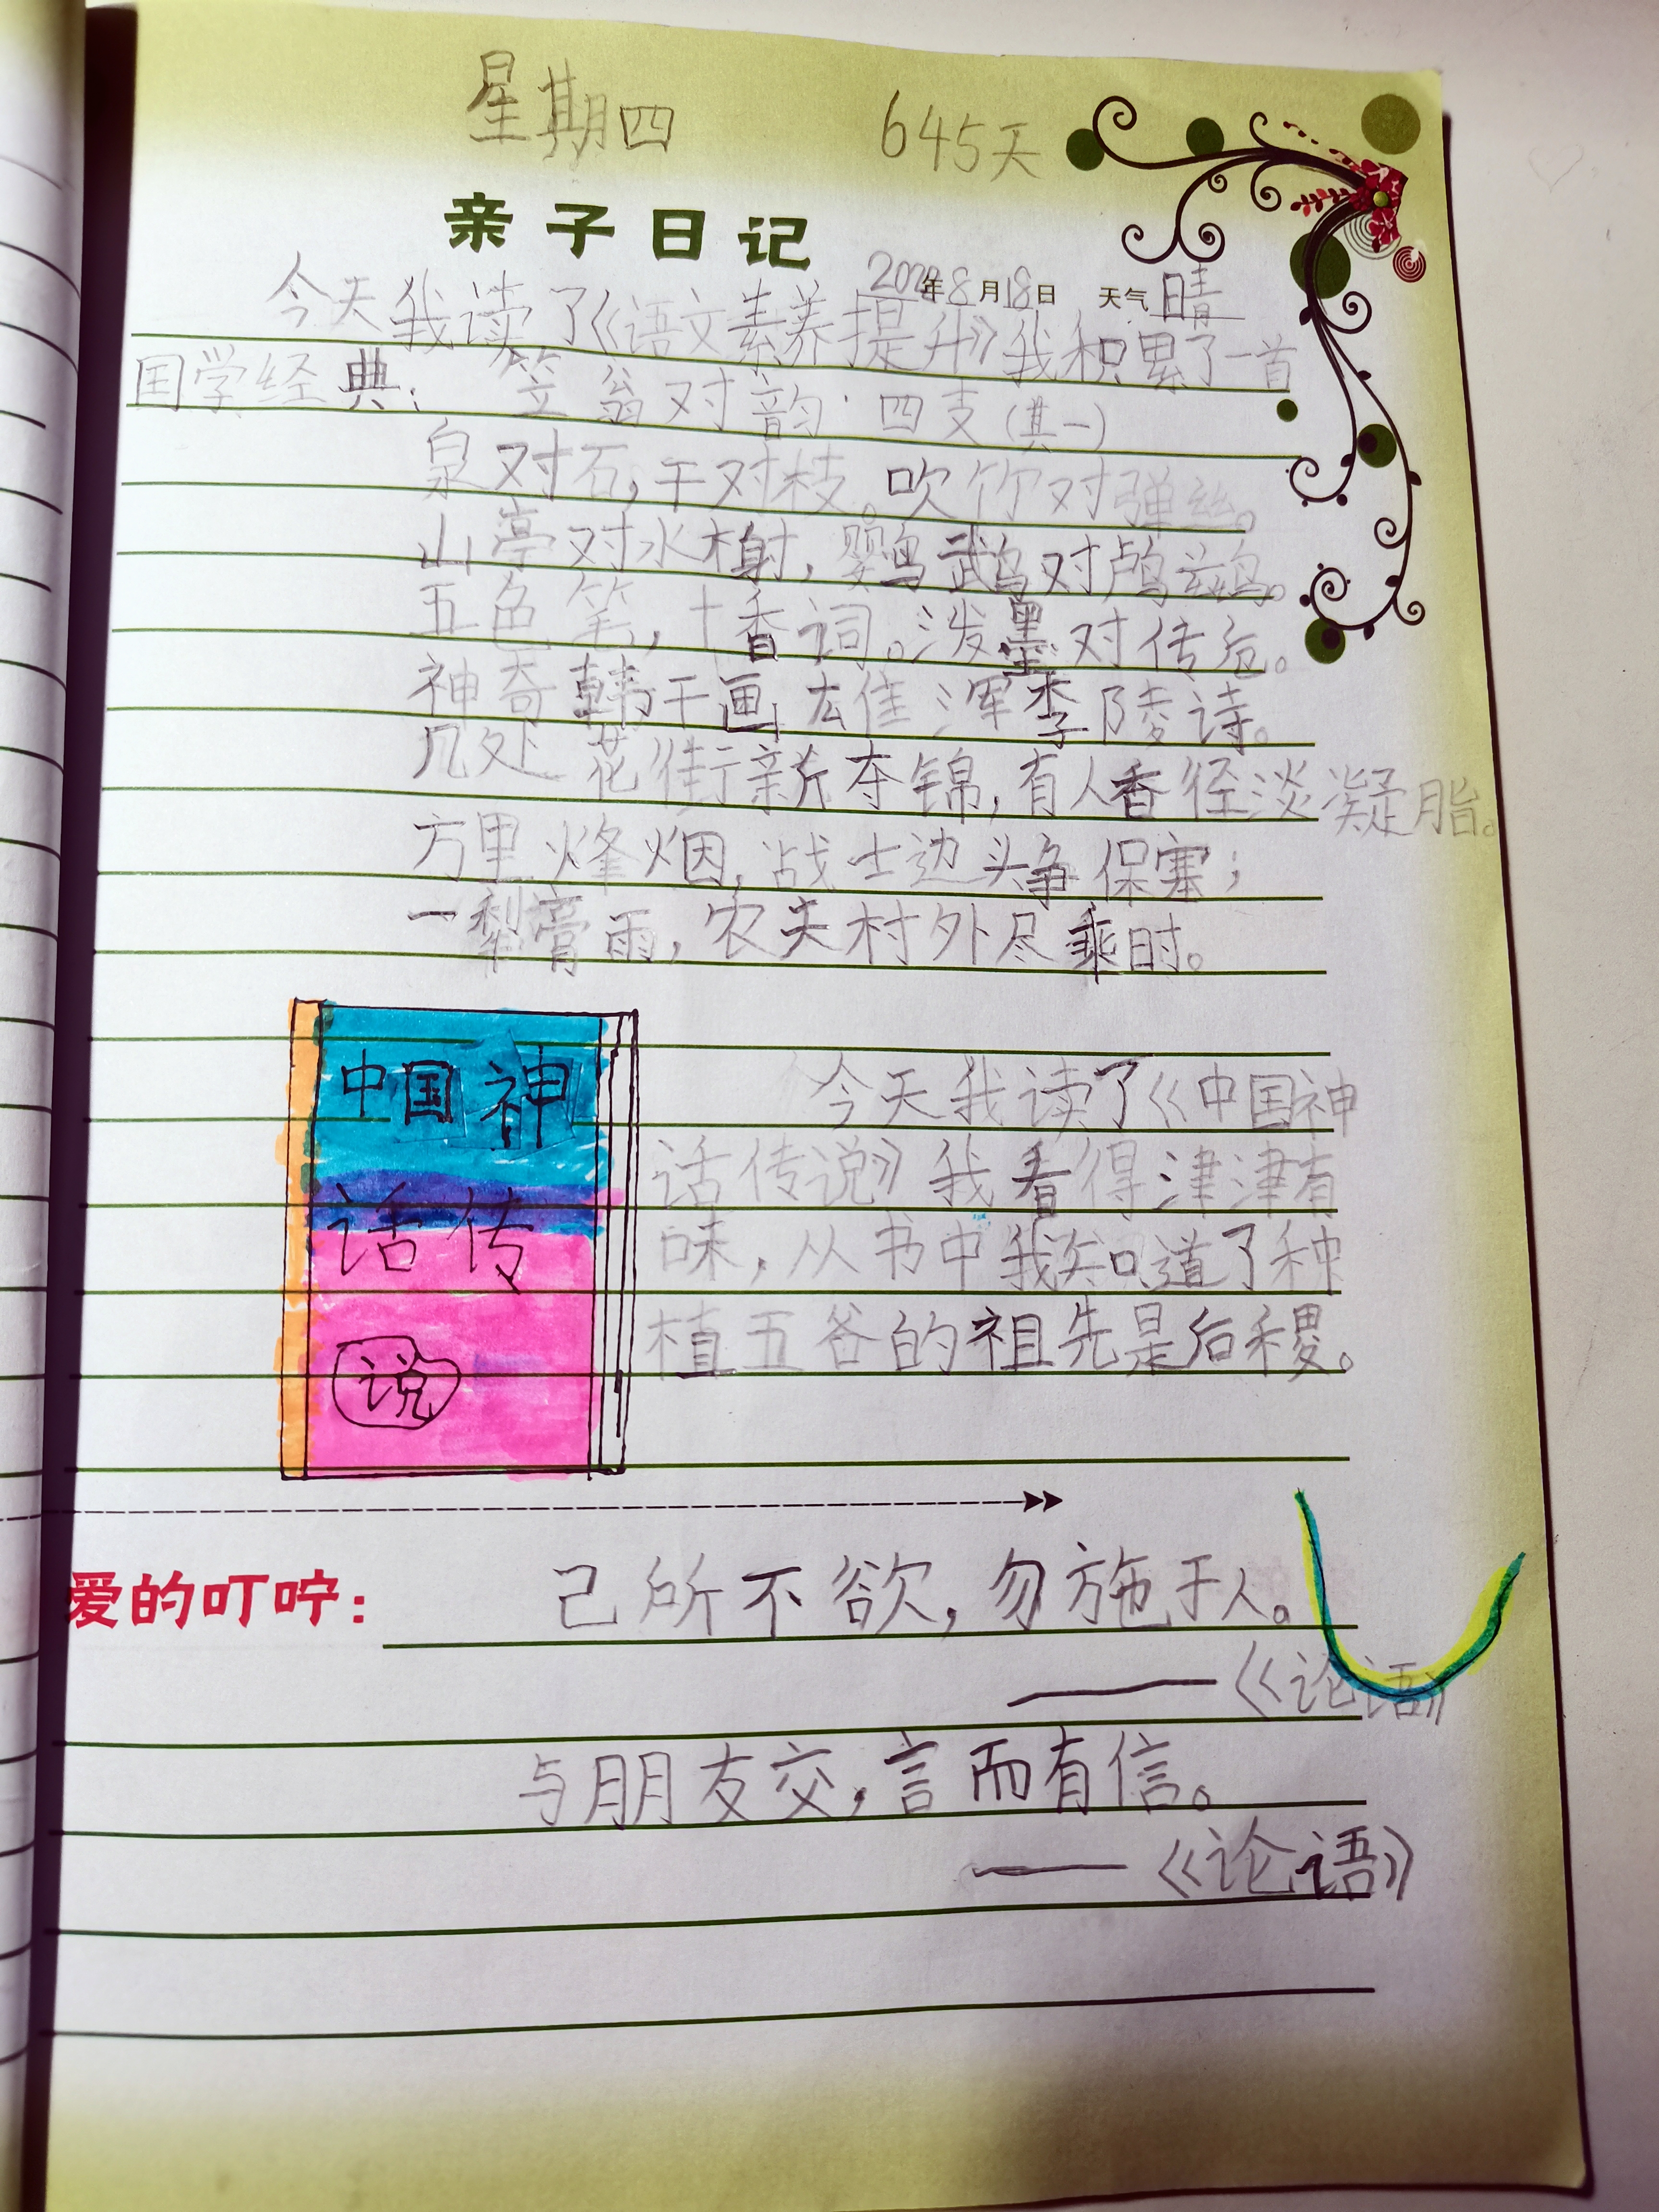 星期四 645天
亲子日记
2022年8月18日 天气 晴
今天我读了《语文素养提升》我积累了一首
国学经典: 笠翁对韵·四支(其一)
泉对石,干对枝。吹竹对弹丝。
山亭对水榭,鹦鹉对鸬鹚。
五色笔,十香词。泼墨对传卮。
神奇韩干画,雄浑李陵诗。
几处花街新夺锦,有人香径淡凝脂。
方里烽烟,战士边头争保塞;
一犁膏雨,农夫村外尽乘时。
中国神
话传
说
今天我读了《中国神
话传说》我看得津津有
味,从书中我知道了种
植五谷的祖先是后稷。
爱的叮咛: 己所不欲,勿施于人。
——《论语》
与朋友交,言而有信。
——《论语》